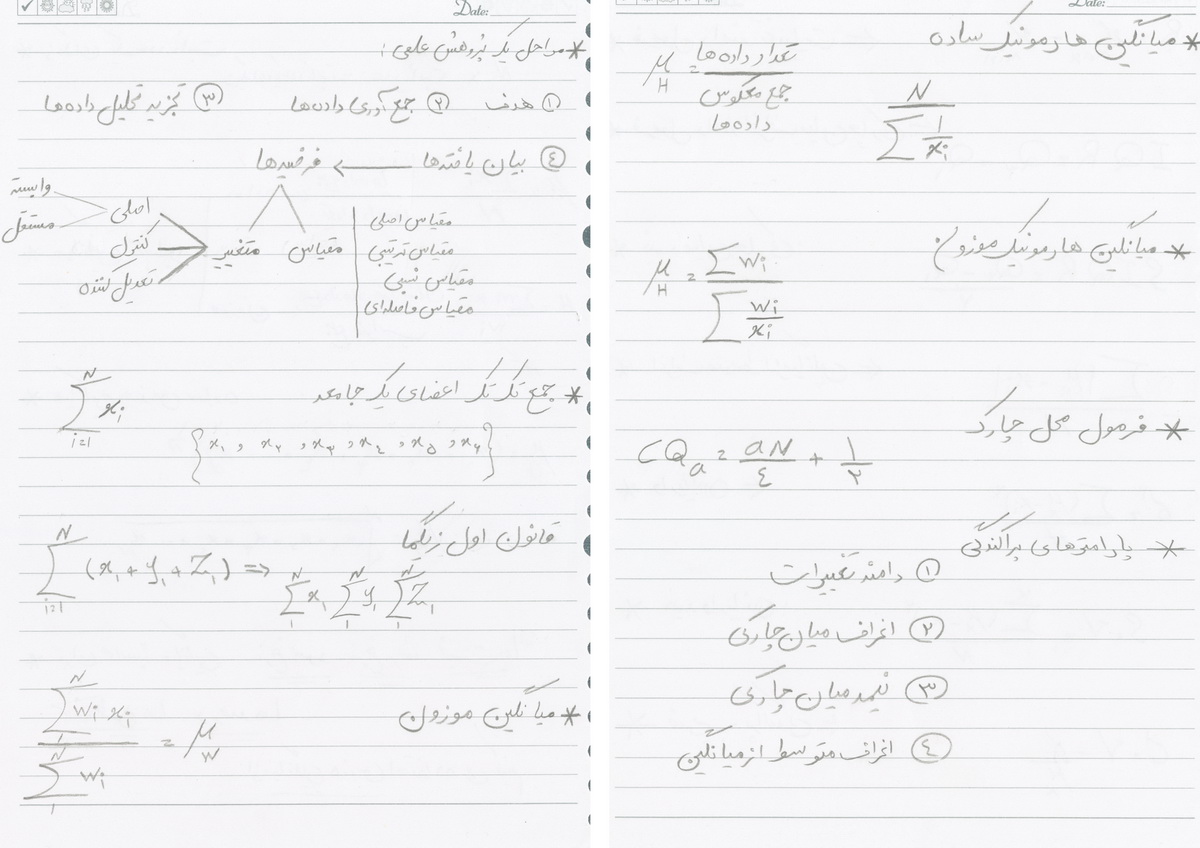 Date:
* مراحل یک پژوهش علمی :
① هدف ② جمع آوری داده‌ها ③ تجزیه تحلیل داده‌ها
④ بیان یافته‌ها ← فرضیه‌ها
مقیاس متغییر
مقیاس اصلی
مقیاس ترتیبی
مقیاس نسبی
مقیاس فاصله‌ای
اصلی
کنترل
تعدیل کننده
وابسته
مستقل
* جمع تک تک اعضای یک جامعه
N ∑ i=1 xi
{x۱ , x۲ , x۳ , x٤ , x۵ , x۶}
قانون اول زیگما
N ∑ i=1 (x₁ + y₁ + Z₁) => N ∑ 1 x₁ N ∑ 1 y₁ N ∑ 1 Z₁
* میانگین موزون
N ∑ 1 wi xi / N ∑ 1 wi = μ W
Date:
* میانگین هارمونیک ساده
μ H = تعداد داده‌ها / جمع معکوس داده‌ها
N / ∑ 1/xi
* میانگین هارمونیک موزون
μ H = ∑ wi / ∑ wi/xi
* فرمول محل چارک
CQa = aN/٤ + ۱/۲
* پارامترهای پراکندگی
① دامنه تغییرات
② انحراف میان چارکی
③ نیمه میان چارکی
④ انحراف متوسط از میانگین